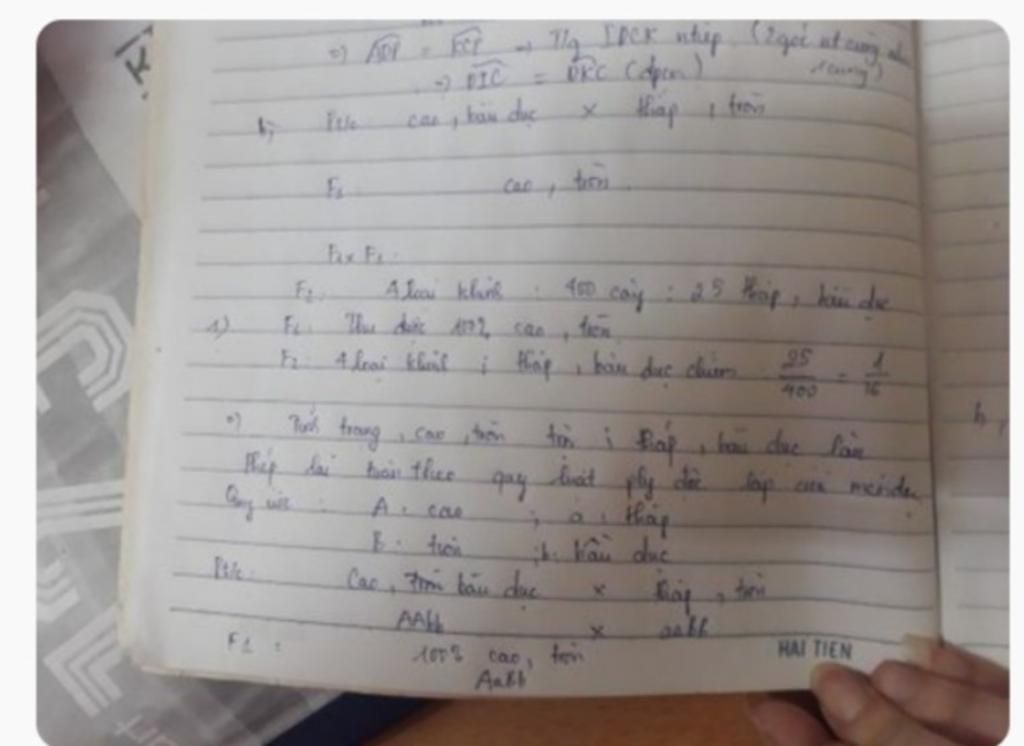 =) ADP = KCP → T/g IDCK ntiếp (2 góc nt cùng
1 cung)
=) DIC = DKC (đpcm)
b; Pt/c cao, bầu dục × thấp, tròn
F1 cao, tròn
F1 x F1.
F2: 4 loại khình : 400 cây : 25 thấp, bầu dục
1) F1: Thu được 100% cao, tròn
F2: 4 loại khình ; thấp, bầu dục chiếm 25/400 = 1/16
=) Tính trạng, cao, tròn ; thấp, bầu dục lặn
Phép lai tuân theo quy luật ply độc lập của menđen
Quy ước : A : cao ; a : thấp
B : tròn ; b : bầu dục
Pt/c: Cao, bầu dục × thấp, tròn
AAbb × aaBB
F1 : 100% cao, tròn
AaBb
HAI TIEN